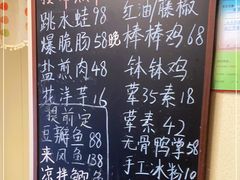 跳水蛙98
爆脆肠58
盐煎肉48
花洋芋16
提前定
豆瓣鱼88
来凤鱼138
凉拌鲫鱼
红油藤椒
晚
棒棒鸡68
钵钵鸡
荤35素18
荤素42
无骨鸭掌58
手工冰粉10